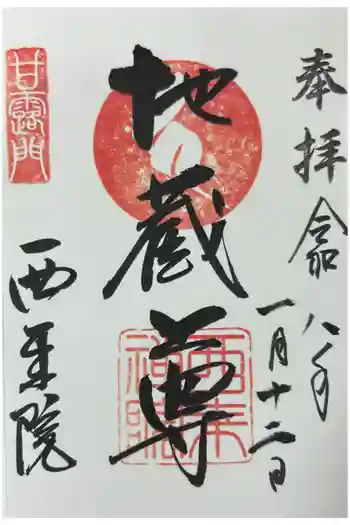 奉拝 令和八年
一月十二日
地蔵尊
甘露門
西来院
西来禅院